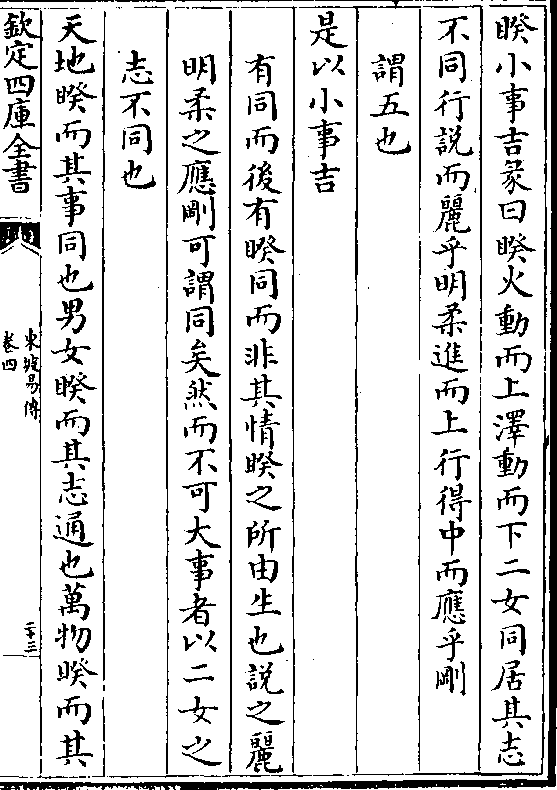 睽小事吉彖曰睽火動而上澤動而下二女同居其志
不同行說而麗乎明柔進而上行得中而應乎剛
謂五也
是以小事吉
有同而後有睽同而非其情睽之所由生也說之麗
明柔之應剛可謂同矣然而不可大事者以二女之
志不同也
天地睽而其事同也男女睽而其志通也萬物睽而其
欽定四庫全書
東坡易傳
卷四
二十三